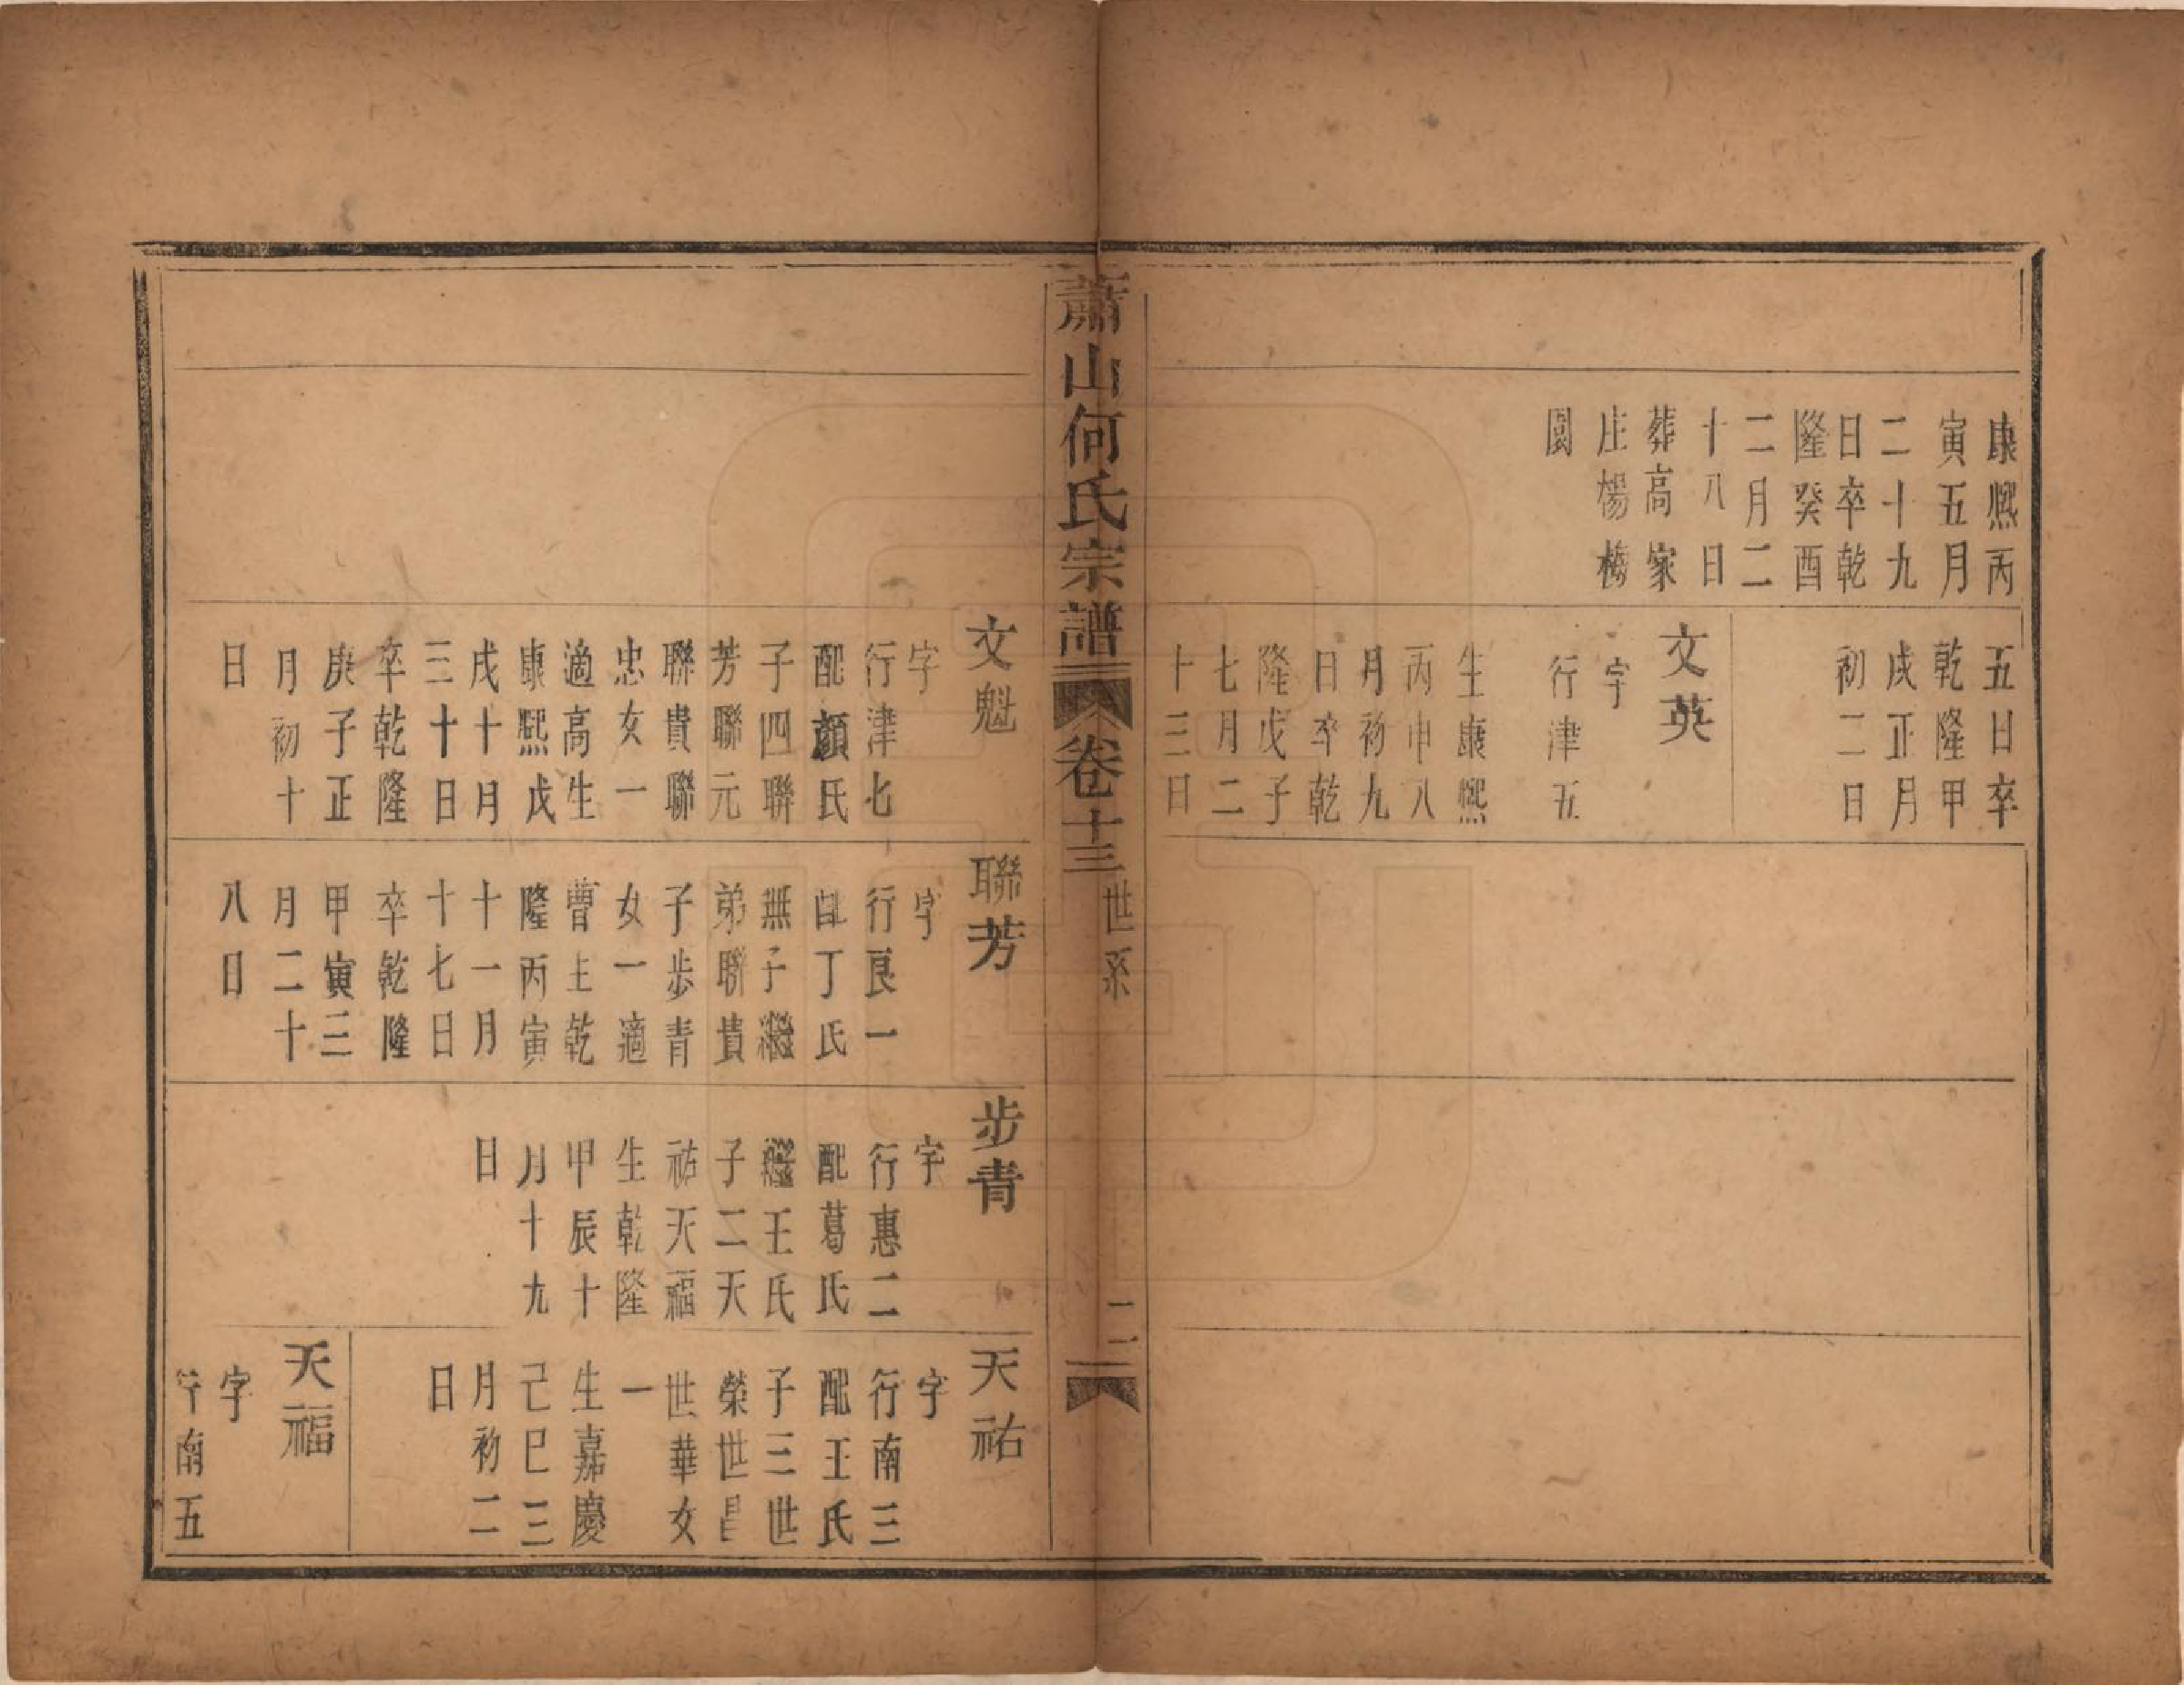 康熙丙
寅五月
二十九
日卒乾
隆癸酉
二月二
十八日
葬高家
庄楊梅
園
五日卒
乾隆甲
戌正月
初二日
文英
字
行津五
生康熙
丙申八
月初九
日卒乾
隆戊子
七月二
十三日
蕭山何氏宗譜
卷十三
世系
二
文魁
字
行津七
配顏氏
子四聯
芳聯元
聯貴聯
忠女一
適高生
康熙戊
戌十月
三十日
卒乾隆
庚子正
月初十
日
聯芳
字
行良一
配丁氏
無子繼
弟聯貴
子步青
女一適
曹生乾
隆丙寅
十一月
十七日
卒乾隆
甲寅三
月二十
八日
步青
字
行惠二
配葛氏
繼王氏
子二天
祐天福
生乾隆
甲辰十
月十九
日
天祐
字
行南三
配王氏
子三世
榮世昌
世華女
一
生嘉慶
己巳三
月初二
日
天福
字
行南五